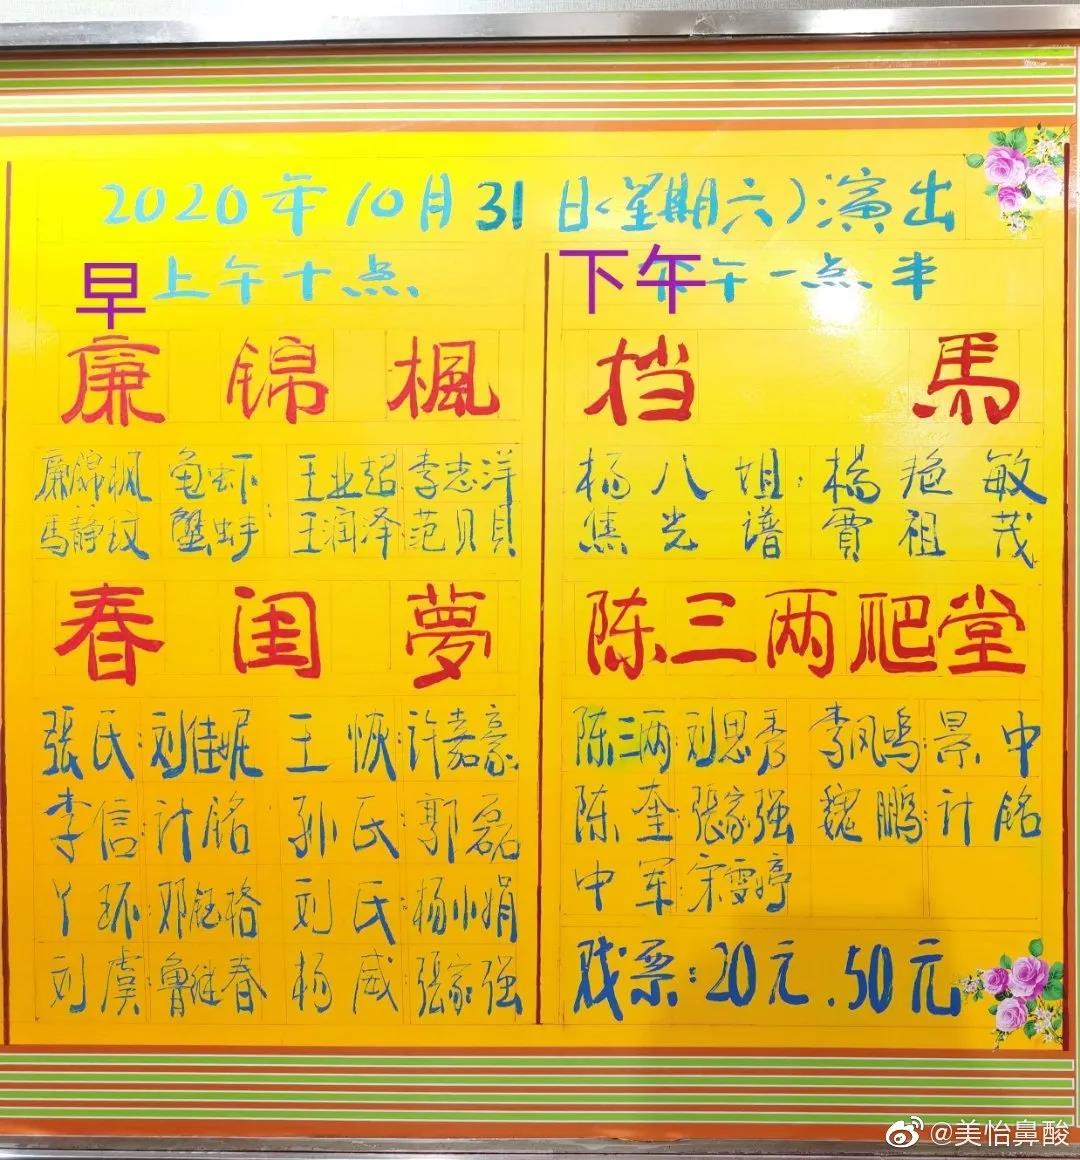 2020年10月31日(星期六)演出
早上午十点
廉錦楓
廉錦楓 龟虾 王业超 李志洋
馬静玟:蟹蚌:王润泽 范贝貝
春闺夢
張氏:刘佳妮 王恢:许嘉豪
李信:计铭 孙氏:郭磊
丫环:邓钰格 刘氏:杨小娟
刘虞:魯继春 杨威:張家强
下午下午一点半
挡馬
杨八姐:楊艳敏
焦光谱 賈祖茂
陈三两爬堂
陈三两:刘思秀 李凤鸣:景中
陈奎:張家强 魏鹏:计铭
中军:宋雯婷
戏票:20元.50元
@美怡鼻酸